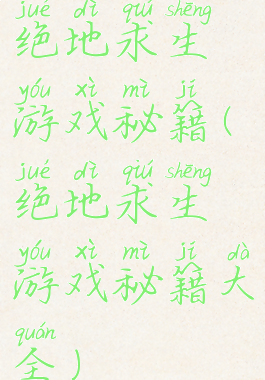 jué dì qiú shēng
绝地求生
yóu xì mì jí
游戏秘籍(
jué dì qiú shēng
绝地求生
yóu xì mì jí dà
游戏秘籍大
quán
全)